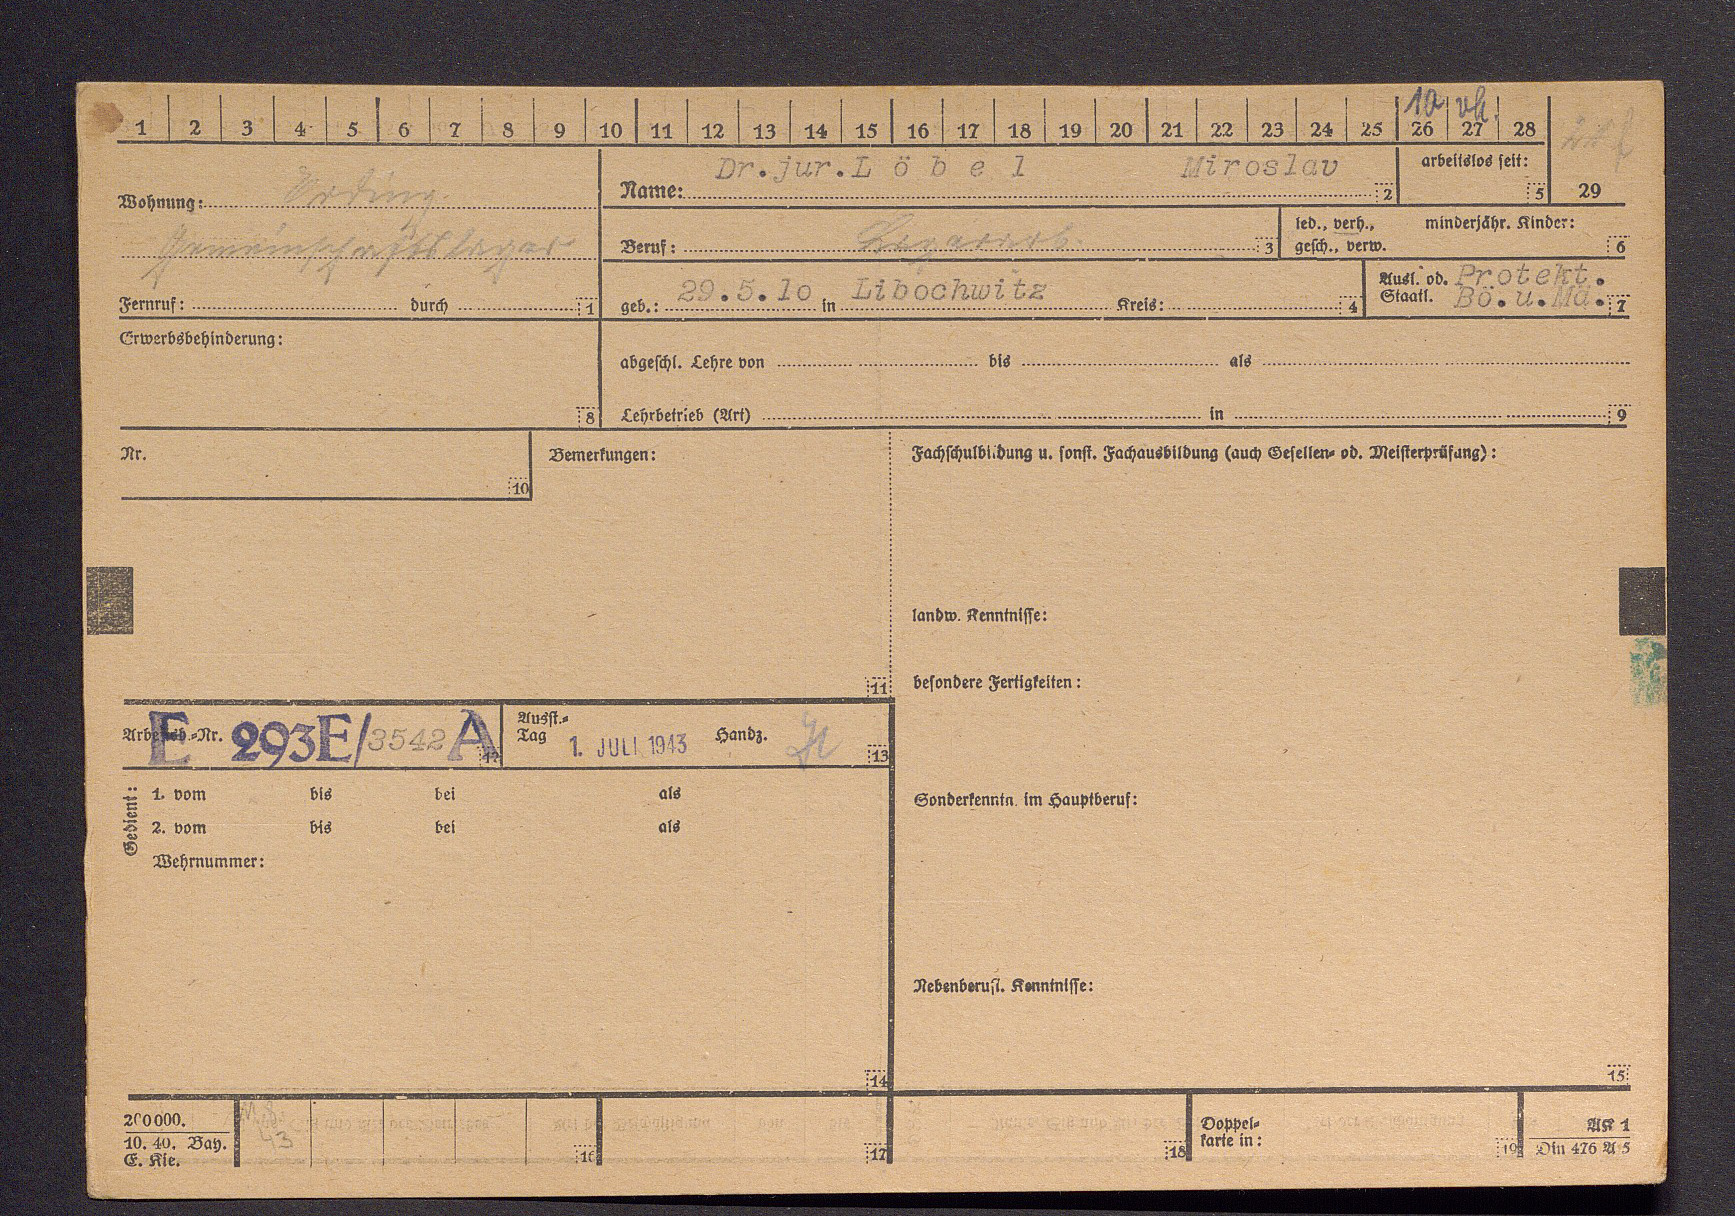 1 2 3 4 5 6 7 8 9 10 11 12 13 14 15 16 17 18 19 20 21 22 23 24 25 26 27 28
10 vh.
Wohnung: Erding.
Gemeinschaftslager
Fernruf: durch 1
Name: Dr.jur.Löbel Miroslav 2
arbeitslos seit: 5
29
Beruf: 3
led., verh., minderjähr. Kinder:
gesch., verw. 6
geb.: 29.5.10 in Libochwitz Kreis: 4
Ausl. od. Protekt.
Staatl. Bö.u.Mä. 7
Erwerbsbehinderung:
8
abgeschl. Lehre von bis als
Lehrbetrieb (Art) in 9
Nr.
10
Bemerkungen:
11
Fachschulbildung u. sonst. Fachausbildung (auch Gesellen- od. Meisterprüfung):
landw. Kenntnisse:
besondere Fertigkeiten:
Arbeitsb.-Nr. E 293E/3542 A 12
Ausst.-
Tag 1. JULI 1943 Handz. 13
Gedient:
1. vom bis bei als
2. vom bis bei als
Wehrnummer:
14
Sonderkenntn. im Hauptberuf:
Nebenberufl. Kenntnisse:
15
200000.
10. 40. Bay.
E. Kle.
43
16
17
18
Doppel-
karte in: 19
AK 1
Din 476 A 5